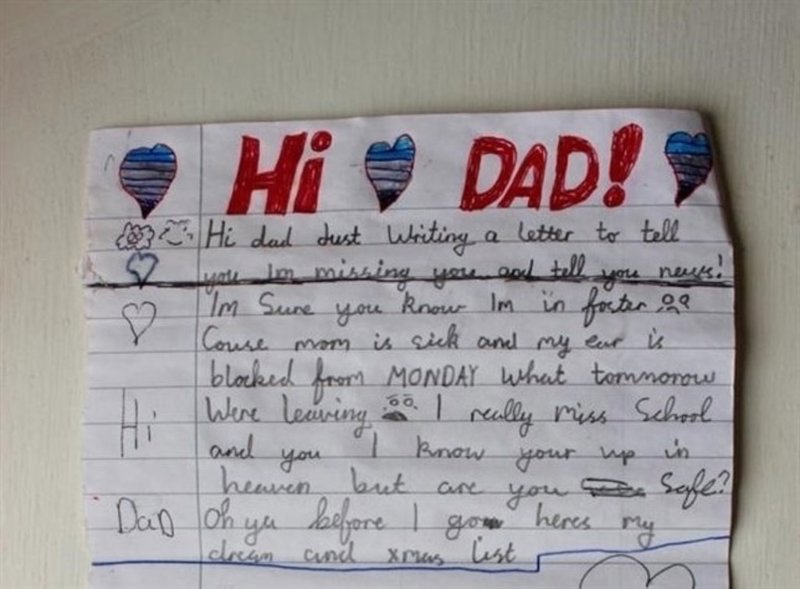 Hi DAD!
Hi dad Just Writing a letter to tell
you Im missing you and tell you news!
Im Sure you know Im in foster
Couse mom is sick and my ear is
blocked from MONDAY What tommorow
Were leaving I really miss School
Hi
and you I know your up in
heaven but are you Safe?
DaD
Oh ya before I go heres my
dream and xmas list